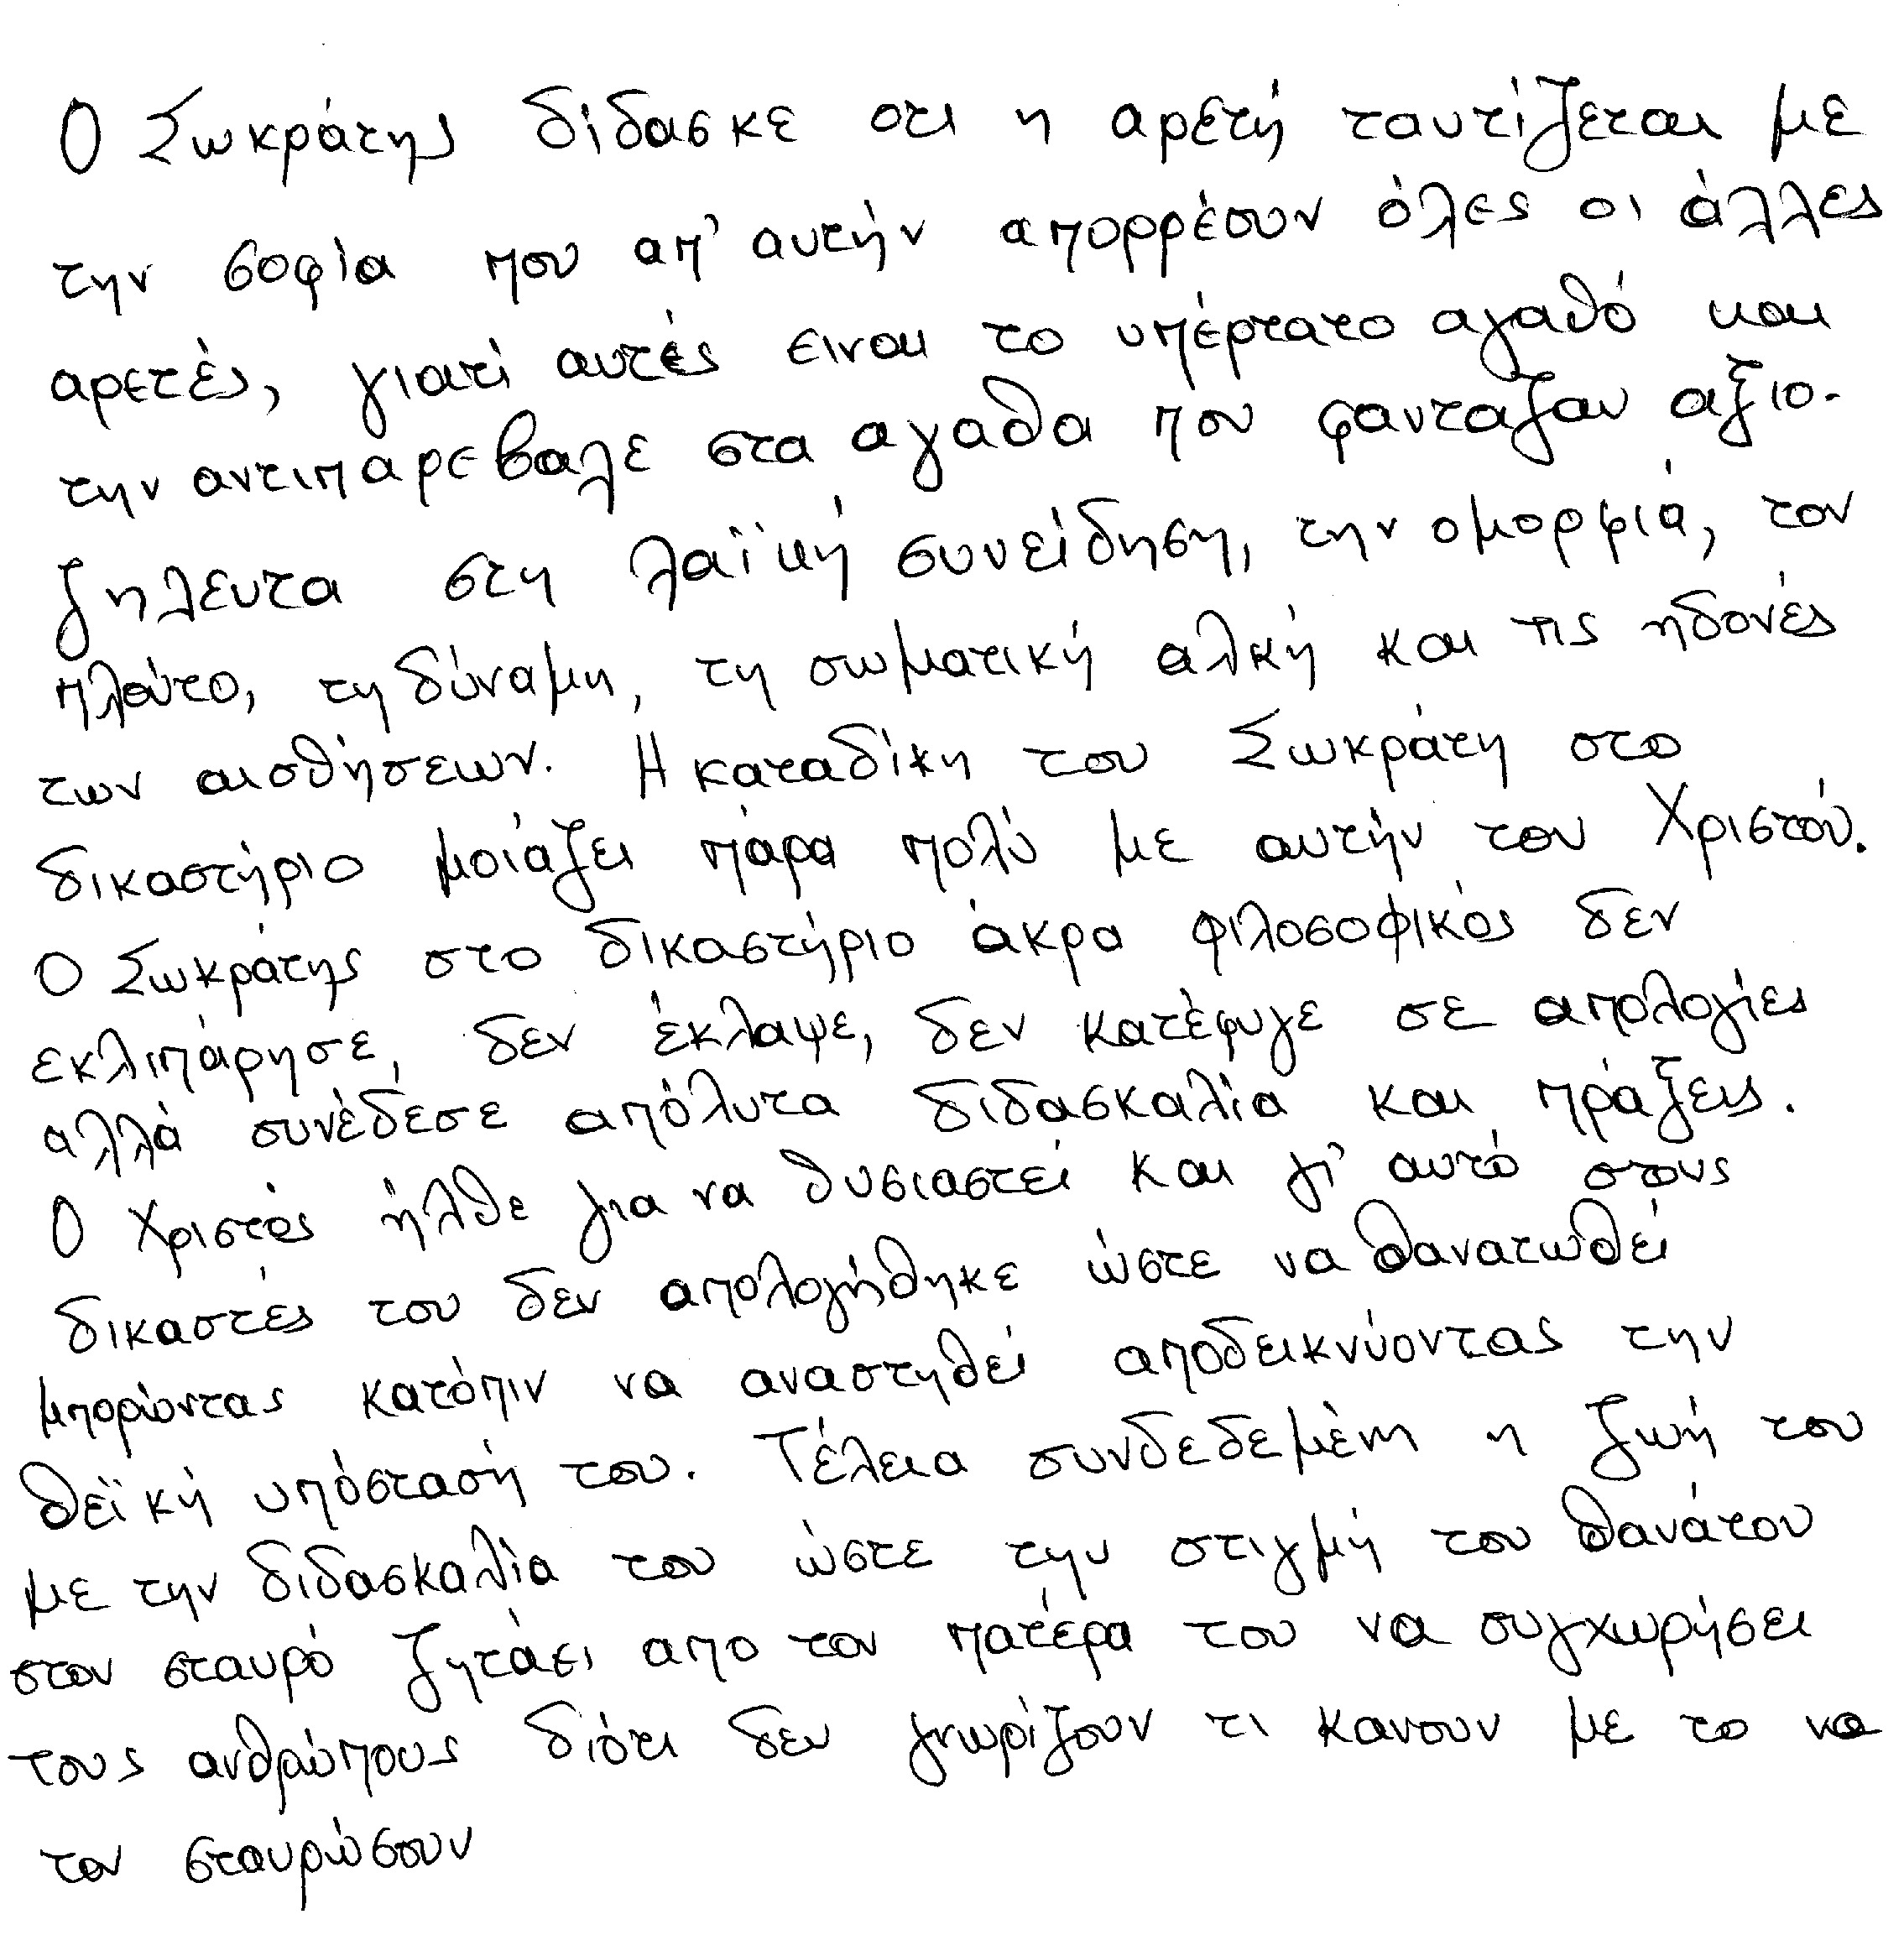 Ο Σωκράτης δίδασκε οτι η αρετή ταυτίζεται με
την σοφία που απ' αυτήν απορρέουν όλες οι άλλες
αρετές, γιατί αυτές ειναι το υπέρτατο αγαθό και
την αντιπαρεβαλε στα αγαθα που φανταζαν αξιο-
ζηλευτα στη λαϊκή συνείδηση, την ομορφιά, τον
πλούτο, τη δύναμη, τη σωματική αλκή και τις ηδονές
των αισθήσεων. Η καταδίκη του Σωκράτη στο
δικαστήριο μοιάζει πάρα πολύ με αυτήν του Χριστού.
Ο Σωκράτης στο δικαστήριο άκρα φιλοσοφικός δεν
εκλιπάρησε, δεν έκλαψε, δεν κατέφυγε σε απολογίες
αλλά συνέδεσε απόλυτα διδασκαλία και πράξεις.
Ο Χριστός ήλθε για να θυσιαστεί και γι' αυτό στους
δικαστές του δεν απολογήθηκε ώστε να θανατωθεί
μπορώντας κατόπιν να αναστηθεί αποδεικνύοντας την
θεϊκή υπόστασή του. Τέλεια συνδεδεμένη η ζωή του
με την διδασκαλία του ώστε την στιγμή του θανάτου
στον σταυρό ζητάει απο τον πατέρα του να συγχωρήσει
τους ανθρώπους διότι δεν γνωρίζουν τι κανουν με το να
τον σταυρώσουν